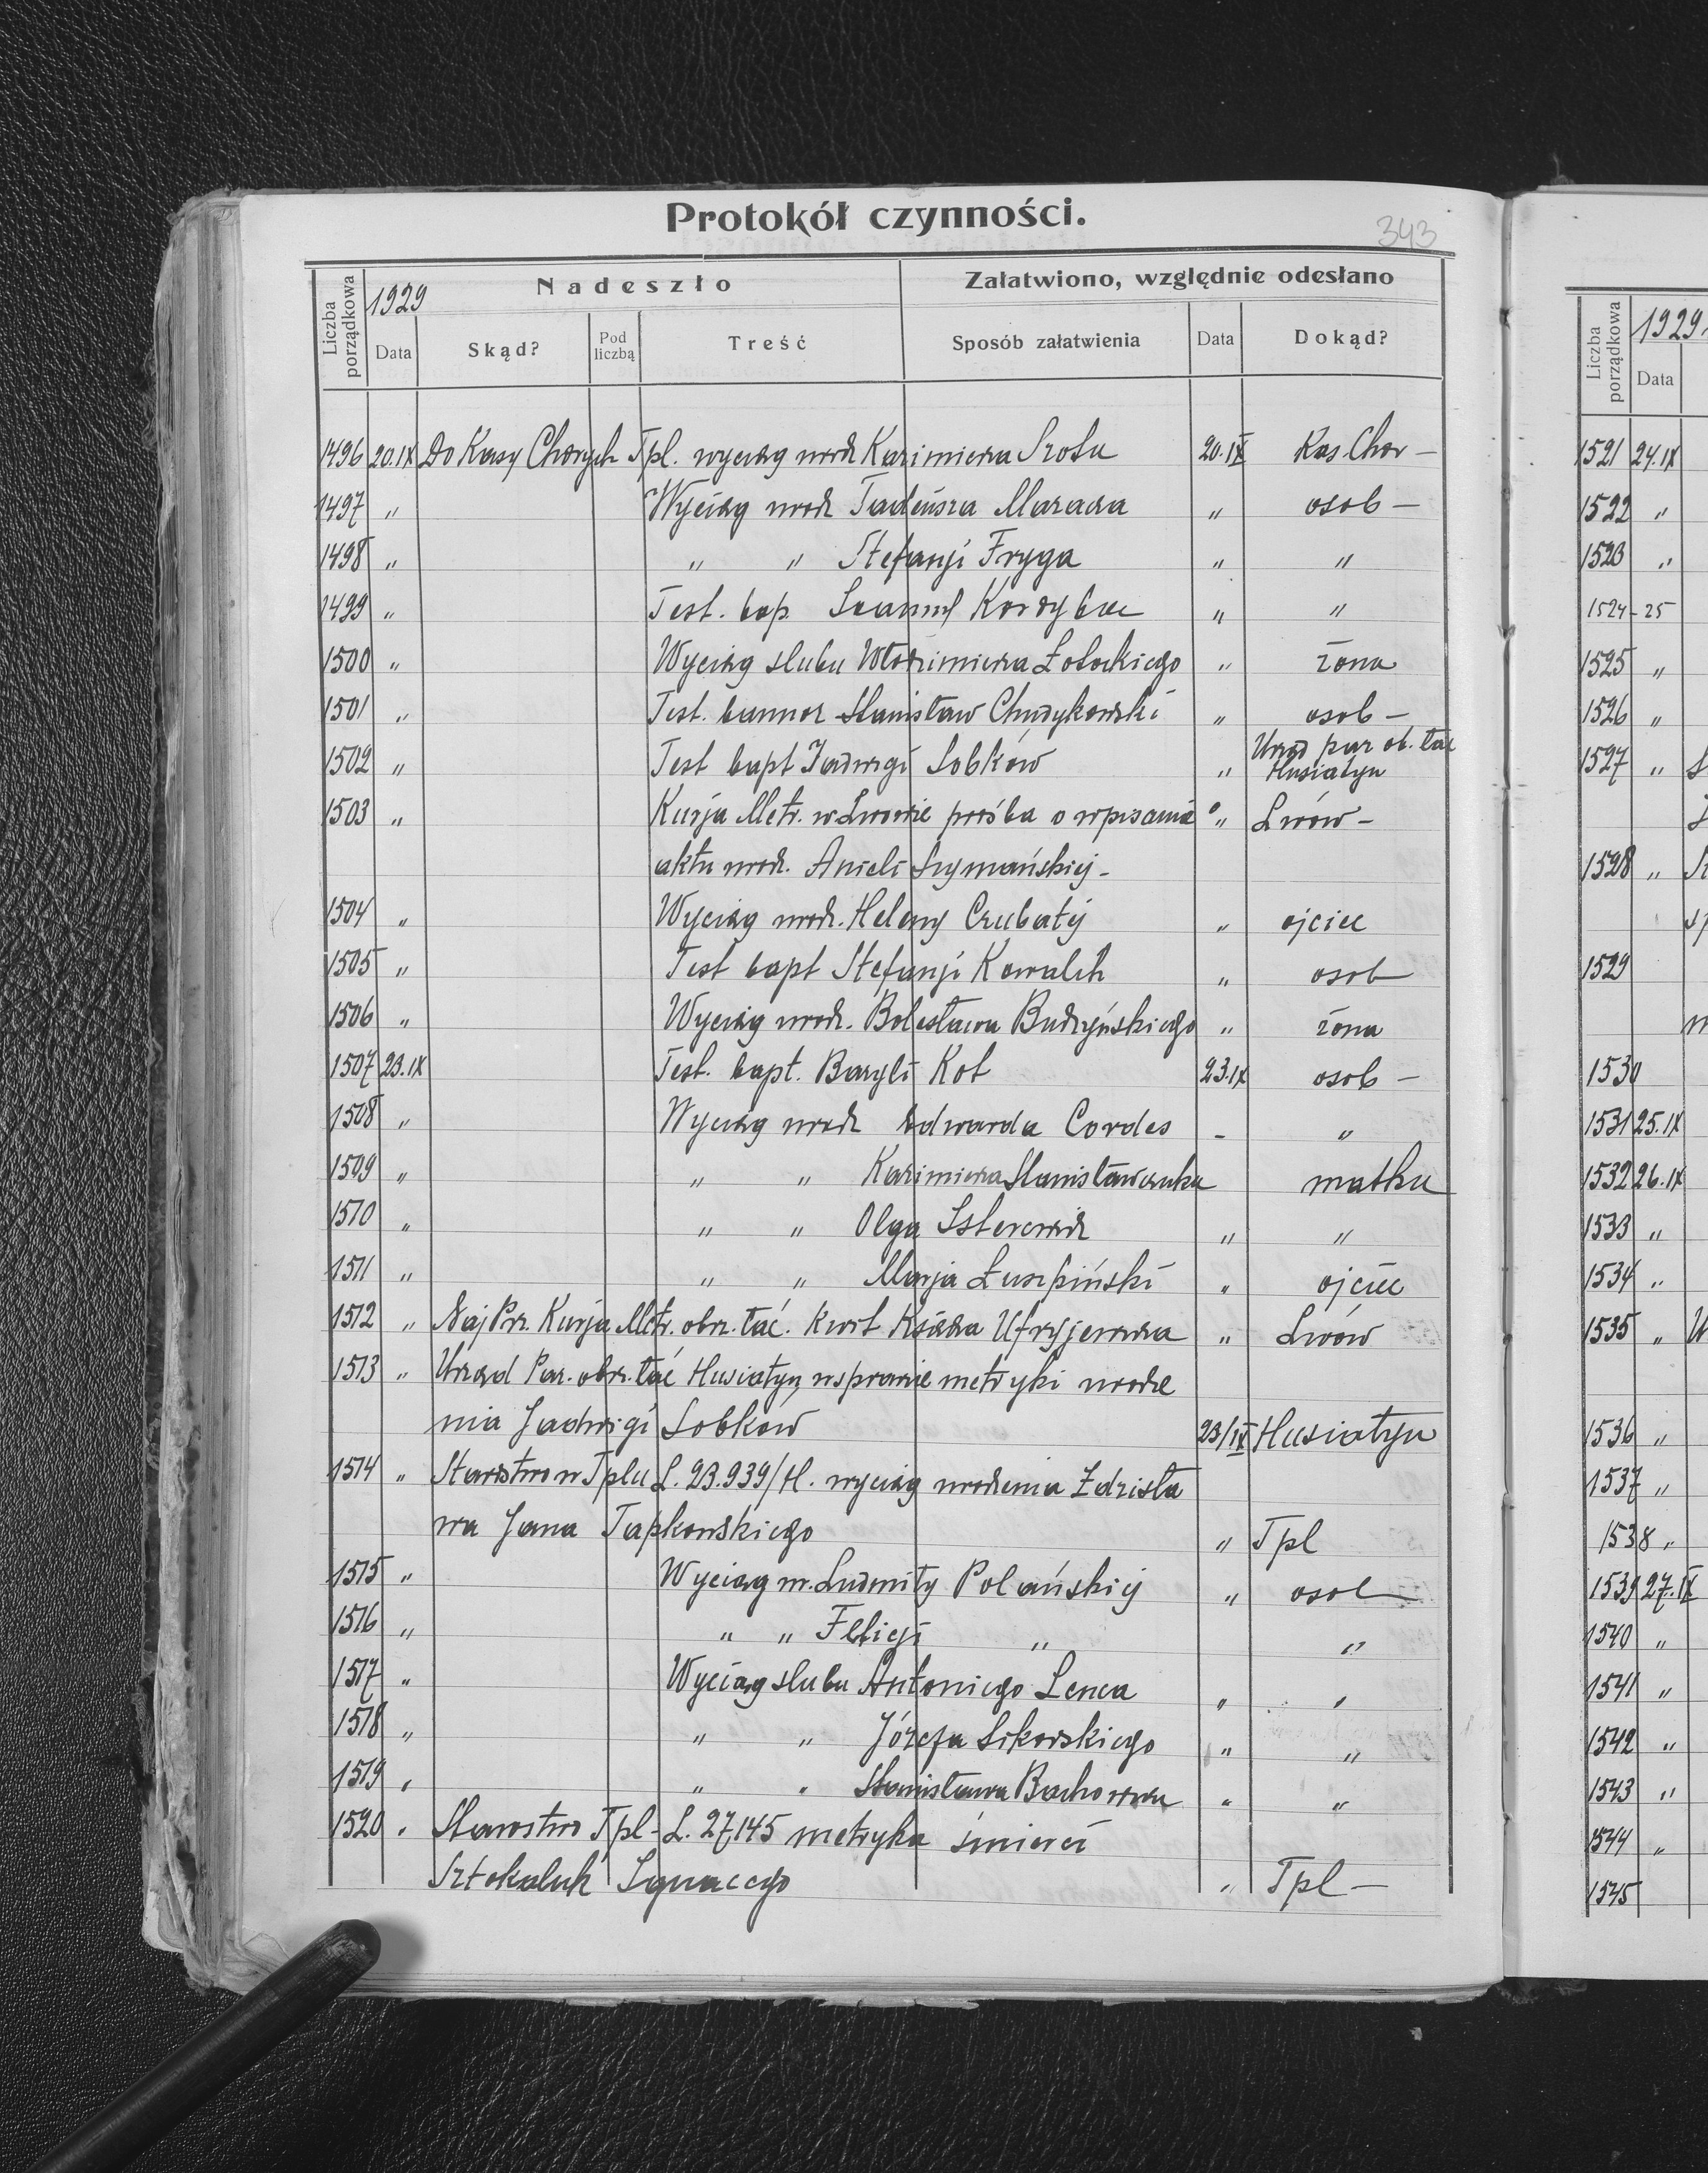 Protokół czynności.
343
Liczba porządkowa
1929
Nadeszło
Załatwiono, względnie odesłano
Data
Skąd?
Pod liczbą
Treść
Sposób załatwienia
Data
Dokąd?
1496 20.IX Do Kasy Chorych Tpl. wyciąg urodz Kazimierza Szota 20.IX Kas. Chor –
1497 " Wyciąg urodz Tadeusza " osob –
1498 " " " Stefanji Fryga " "
1499 " Test. bap. " "
1500 " Wyciąg slubu Włodzimierza Łotockiego " żona
1501 " Test. bannor Stanisław " osob –
1502 " Test bapt Jadwigi Sobków " Urząd par ob. łac Husiatyn
1503 " Kurja Metr. w Lwowie prośba o wpisania " Lwów –
aktu urodz. Anieli Szymańskiej –
1504 " Wyciąg urodz. Heleny Czubatej " ojciec
1505 " Test bapt Stefanji Kowaluk " osob
1506 " Wyciąg urodz. Bolesława Budzyńskiego " żona
1507 23.IX Test. bapt. Baryli Kot 23.IX osob –
1508 " Wyciąg urodz Edwarda Cordes – "
1509 " " " Kazimierza Stanisławczuka matka
1510 " " " Olga " "
1511 " " " Marja Łuszpiński " ojciec
1512 " Naj Prz. Kurja Metr. obrz. łać. Kwit Księdza " Lwów
1513 " Urząd Par. obrz. łać Husiatyn w sprawie metryki urodze
nia Jadwigi Sobków 23/IX Husiatyn
1514 " Starostwo w Tplu L. 23.939/H. wyciąg urodzenia Zdzisła
wa Jana Tapkowskiego " Tpl
1515 " Wyciąg ur. Ludmiły Polańskiej " osob
1516 " " " Felicji " "
1517 " Wyciąg slubu Antoniego Lenca " "
1518 " " " Józefa Sikorskiego " "
1519 " " " Stanisława " "
1520 " Starostwo Tpl – L. 27145 metryka śmierci
Sztokaluk Ignacego " Tpl –
Liczba porządkowa
1929
Data
1521 24.IX
1522 "
1523 "
1524 – 25
1525 "
1526 "
1527 "
1528 "
1529
1530
1531 25.IX
1532 26.IX
1533 "
1534 "
1535 "
1536 "
1537 "
1538 "
1539 27.IX
1540 "
1541 "
1542 "
1543 "
1544 "
1545